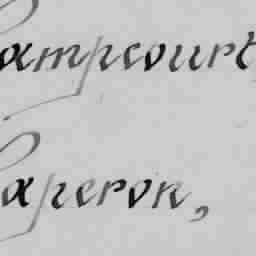 ampcourt
aperon,